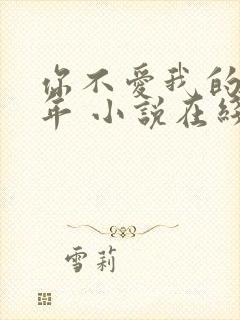 你不愛我的
年 小說在綫
雪莉